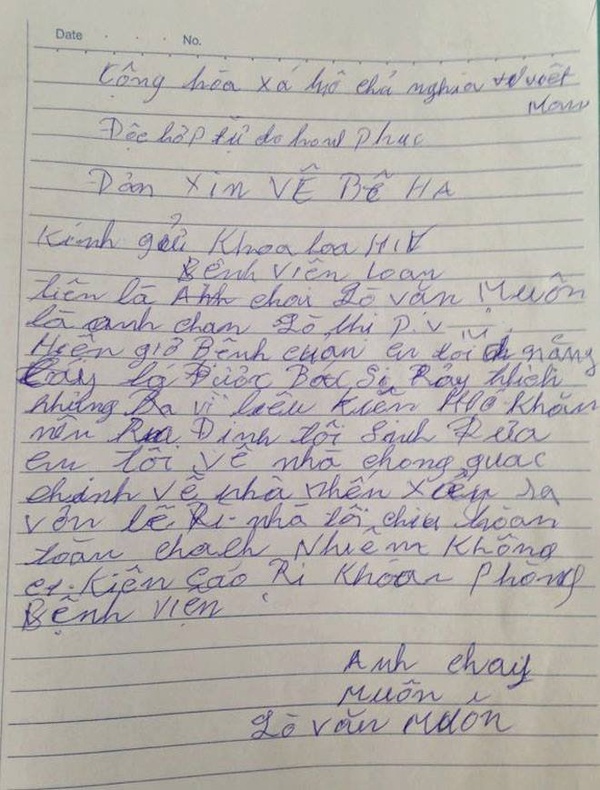 Date . . . No.
Cộng hòa xá hộ chủ nghia việt
Mam
Độc hớp tự do hanh phuc
Đơn XIN VỄ BỄ HA
Kính gửi Khoa loa HIV
Bệnh Viên Loan
tiên là Anh chai Lò văn Muôn
là anh chan Lò thi P. V
Hiên giờ Bệnh cuản em tôi nặng
Cay là Được Bác Si Rảy thich
nhưng Ra vì liêu Kiên Khô Khăn
nên Rua Đinh tôi Sinh Đưa
em tôi Về nhà chong guac
chinh về nhà nhên Xẩy ra
vờn lê Ri nhà tôi chiu hoan
toàn chach Nhiêm Không
Kiên Cáo Ri Khoan Phòng
Bệnh Viện
Anh chay
Muôn
Lò Văn Muôn